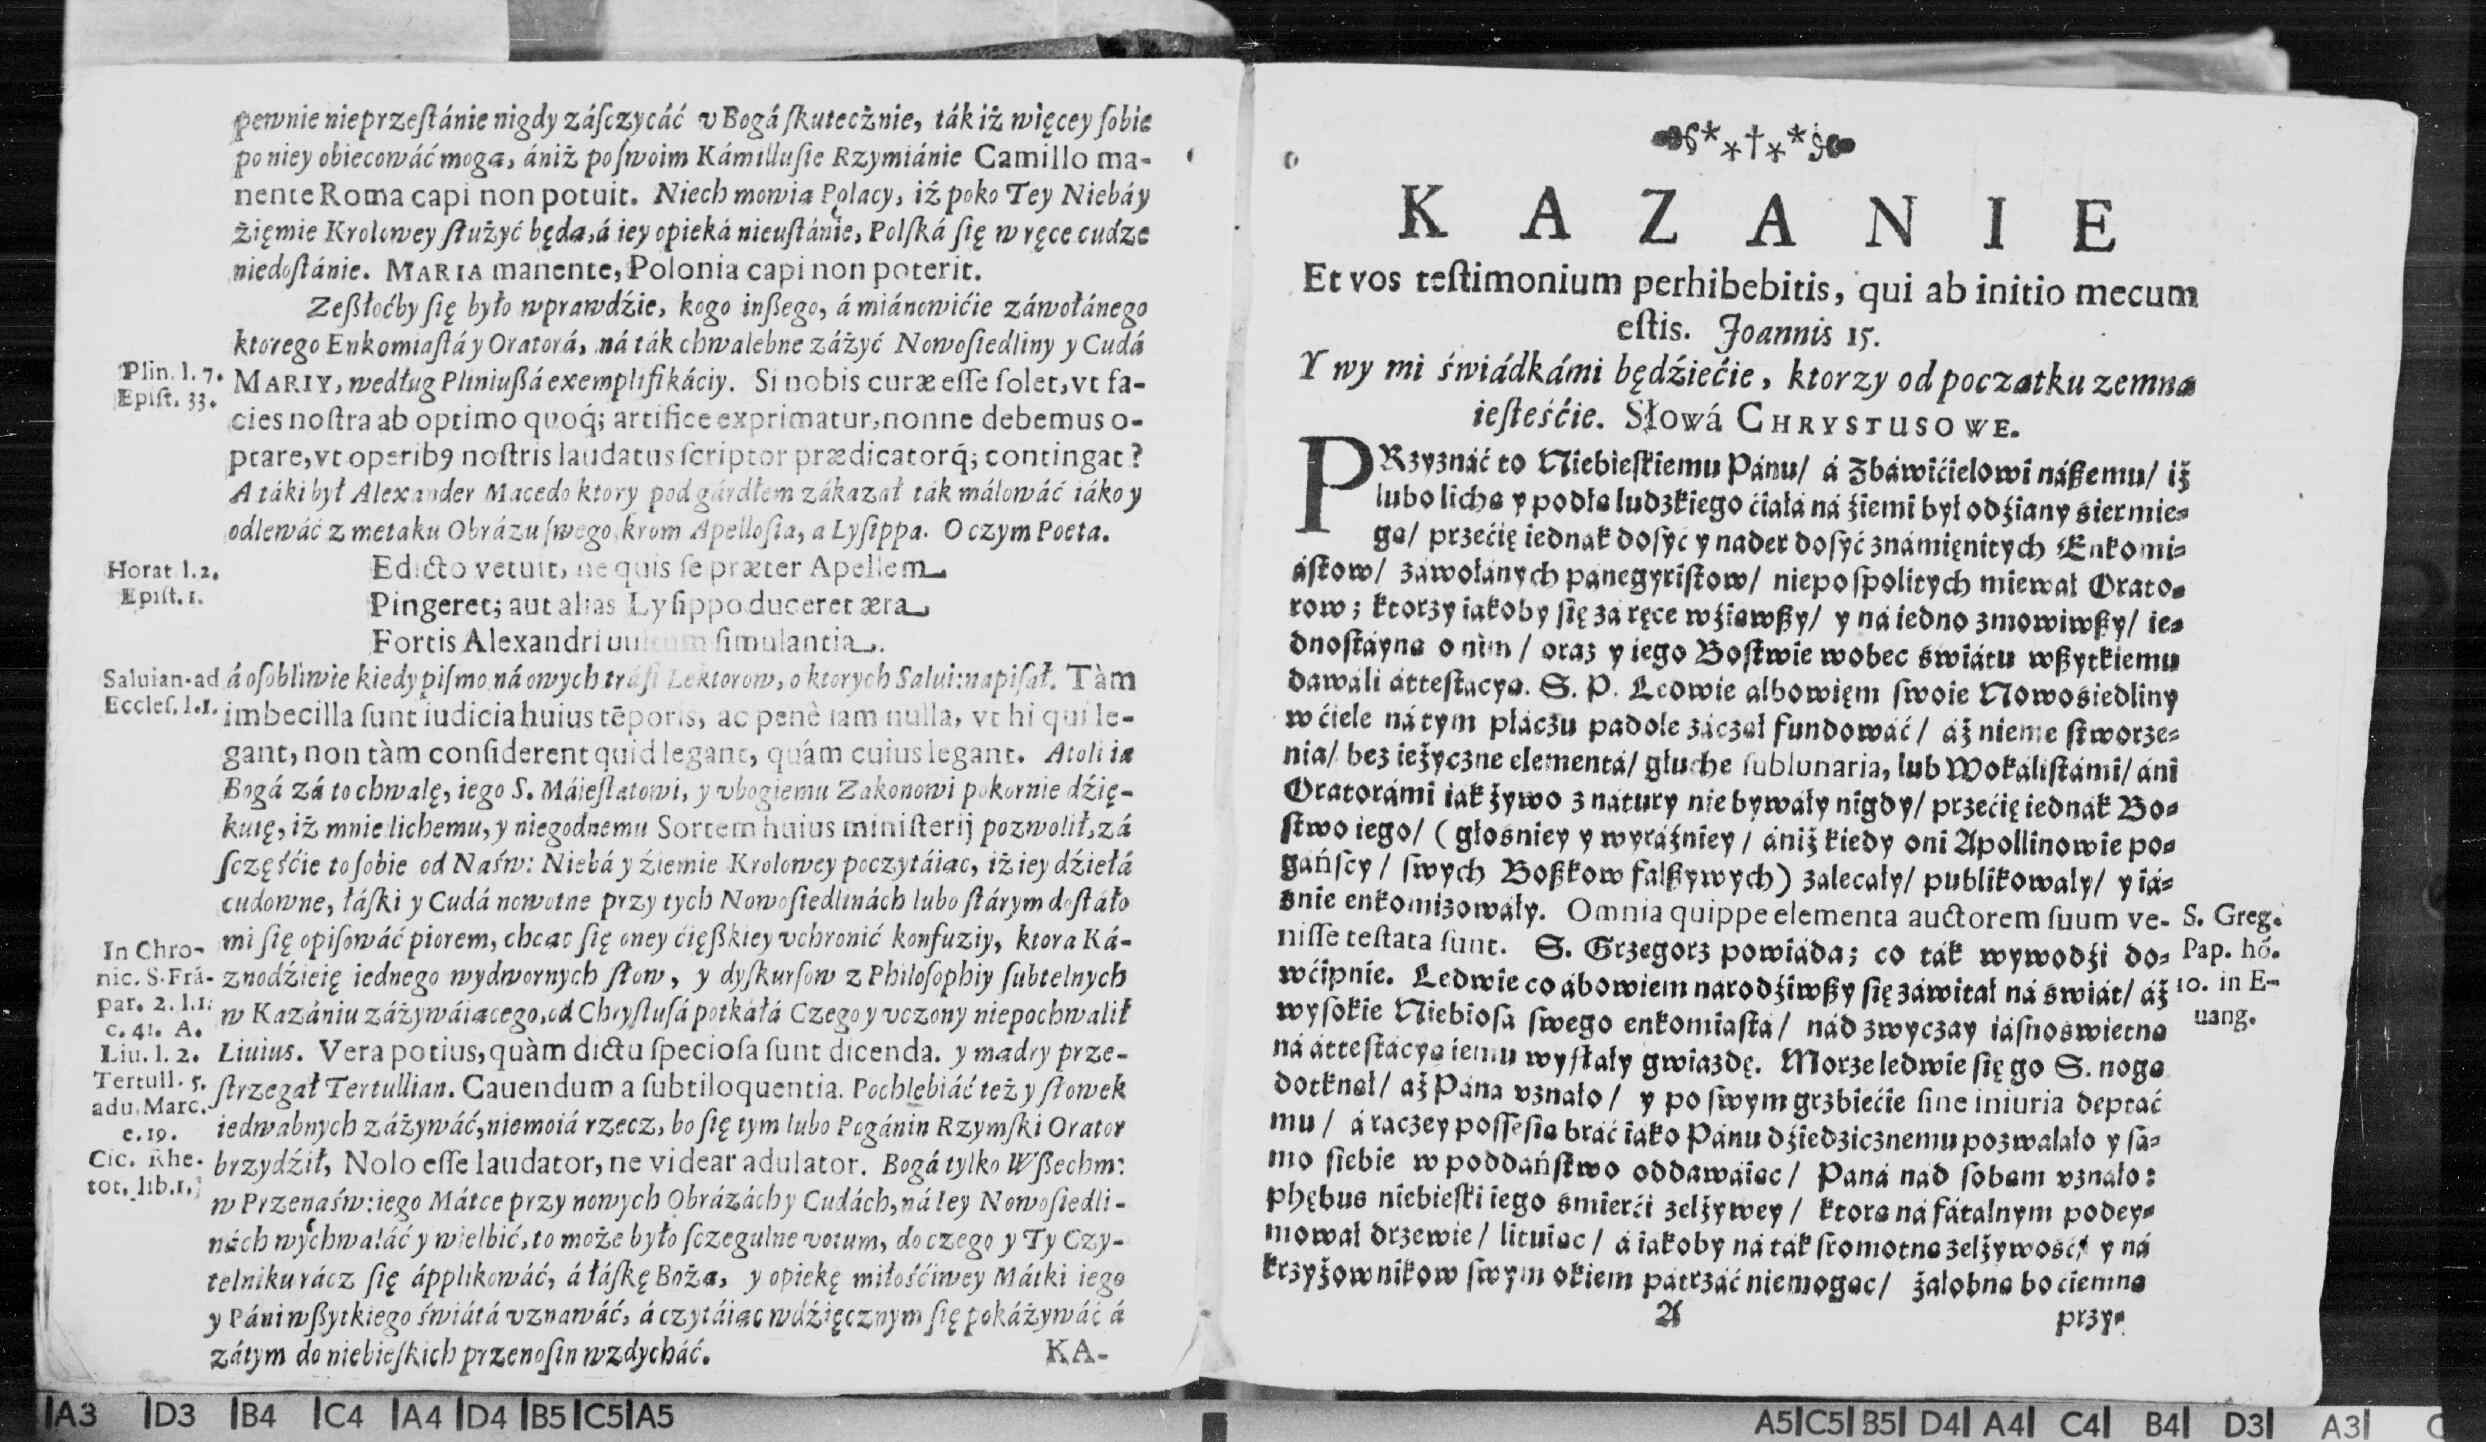 pewnie nieprzeſtánie nigdy záſczycáć v Bogá ſkutecżnie, ták iż więcey ſobie
po niey obiecowáć mogą, ániż po ſwoim Kámilluſie Rzymiánie Camillo ma-
nente Roma capi non potuit. Niech mowią Polacy, iż poko Tey Niebá y
żięmie Krolowey ſłużyć będą, á iey opieká nieuſtánie, Polſká ſię w ręce cudze
niedoſtánie. MARIA manente, Polonia capi non poterit.
Zeßłoćby ſię było wprawdźie, kogo inßego, á miánowićie záwołánego
ktorego Enkomiaſtá y Oratorá, ná ták chwalebne záżyć Nowoſiedliny y Cudá
Plin. l. 7.
Epiſt. 33.
MARIY, według Pliniußá exemplifikáciy. Si nobis curæ eſſe ſolet, vt fa-
cies noſtra ab optimo quoq́; artifice exprimatur, nonne debemus o-
ptare, vt operibꝯ noſtris laudatus ſcriptor prædicatorq́; contingat?
A táki był Alexander Macedo ktory pod gárdłem zákazał ták málowáć iáko y
odlewáć z metaku Obrázu ſwego krom Apelloſia, a Lyſippa. O czym Poeta.
Horat l. 2.
Epiſt. 1.
Edicto vetuit, ne quis ſe præter Apellem
Pingeret; aut alias Lyſippo duceret æra
Fortis Alexandri vultum ſimulantia.
Saluian. ad
Eccleſ. l. 1.
á oſobliwie kiedy piſmo ná owych tráfi Lektorow, o ktorych Salui: napiſał. Tàm
imbecilla ſunt iudicia huius tēporis, ac penè iam nulla, vt hi qui le-
gant, non tàm conſiderent quid legant, quám cuius legant. Atoli ia
Bogá zá to chwalę, iego S. Máieſtatowi, y vbogiemu Zakonowi pokornie dźię-
kuię, iż mnie lichemu, y niegodnemu Sortem huius miniſterij pozwolił, zá
ſczęśćie to ſobie od Naśw: Niebá y źiemie Krolowey poczytáiąc, iż iey dźiełá
cudowne, łáſki y Cudá nowotne przy tych Nowoſiedlinách lubo ſtárym doſtáło
mi ſię opiſowáć piorem, chcąc ſię oney ćięßkiey vchronić konfuziy, ktora Ká-
In Chro-
nic. S. Frá-
par. 2. l. 1.
c. 41. A.
znodźieię iednego wydwornych ſłow, y dyſkurſow z Philoſophiy ſubtelnych
w Kazániu záżywáiącego, od Chryſtuſá potkáłá Czego y vczony niepochwalił
Liu. l. 2.
Liuius. Vera potius, quàm dictu ſpecioſa ſunt dicenda. y mądry prze-
Tertull. 5.
adu. Marc.
c. 19.
ſtrzegał Tertullian. Cauendum a ſubtiloquentia. Pochlebiáć też y ſłowek
iedwabnych záżywáć, niemoiá rzecz, bo ſię tym lubo Pogánin Rzymſki Orator
Cic. Rhe-
tot. lib. 1.
brzydźił, Nolo eſſe laudator, ne videar adulator. Bogá tylko Wßechm:
w Przenaśw: iego Mátce przy nowych Obrázách y Cudách, ná tey Nowoſiedli-
nách wychwaláć y wielbić, to może było ſczegulne votum, do czego y Ty Czy-
telniku rácz ſię ápplikowáć, á łáſkę Bożą, y opiekę miłośćiwey Mátki iego
y Páni wßytkiego świátá vznawáć, á czytáiąc wdźięcznym ſię pokáżywáć á
zátym do niebieſkich przenoſin wzdycháć.
KA-
K A Z A N I E
Et vos teſtimonium perhibebitis, qui ab initio mecum
eſtis. Joannis 15.
Y wy mi świádkámi będźiećie, ktorzy od początku zemną
ieſteśćie. Słowá CHRYSTUSOWE.
PRzyznáć to Niebieſkiemu Pánu/ á Zbáwićielowi náßemu/ iż
lubo lichą y podłą ludzkiego ćiáłá ná źiemi był odźiany śiermię-
gą/ przećię iednak doſyć y nader doſyć známięnitych Enkomi-
áſtow/ záwołánych pánegyriſtow/ nieposſpolitych miewał Orato-
row; ktorzy iakoby ſię zá ręce wźiąwßy/ y ná iedno zmowiwßy/ ie-
dnoſtáyną o nim/ oraz y iego Boſtwie wobec świátu wßytkiemu
dawáli átteſtácyą. S. P. Ledwie álbowięm ſwoie Nowośiedliny
w ćiele ná tym płáczu pádole záczął fundowáć/ áż nieme ſtworze-
nia/ bez ięzyczne elementá/ głuche ſublunaria, lub Wokáliſtámi/ áni
Oratorámi iák żywo z nátury nie bywáły nigdy/ przećię iednák Bo-
ſtwo iego/ (głośniey y wyráźniey/ ániż kiedy oni Apollinowie po-
gáńſcy/ ſwych Boßkow fałßywych) zalecáły/ publikowáły/ y iá-
śnie enkomizowáły. Omnia quippe elementa auctorem ſuum ve-
niſſe teſtata ſunt. S. Grzegorz powiáda; co ták wywodźi do-
S. Greg.
Pap. hō.
10. in E-
uang.
wćipnie. Ledwie co ábowiem národźiwßy ſię záwitał ná świát/ áż
wyſokie Niebioſá ſwego enkomiaſtá/ nád zwyczay iáſnoświetną
ná átteſtácyą iemu wyſłáły gwiazdę. Morze ledwie ſię go S. nogą
dotknął/ áż Páná vznáło/ y po ſwym grzbiećie ſine iniuria deptáć
mu/ á raczey poſſeſią bráć iáko Pánu dźiedzicznemu pozwalało y ſá-
mo ſiebie w poddáńſtwo oddawáiąc/ Páná nád ſobąm vznáło:
phębus niebieſki iego śmierći zelżywey/ ktorą ná fátalnym podey-
mował drzewie/ lituiąc/ á iakoby ná ták ſromotną zelżywość/ y ná
krzyżownikow ſwym okiem pátrzáć niemogąc/ żałobną bo ćiemną
A
przy-